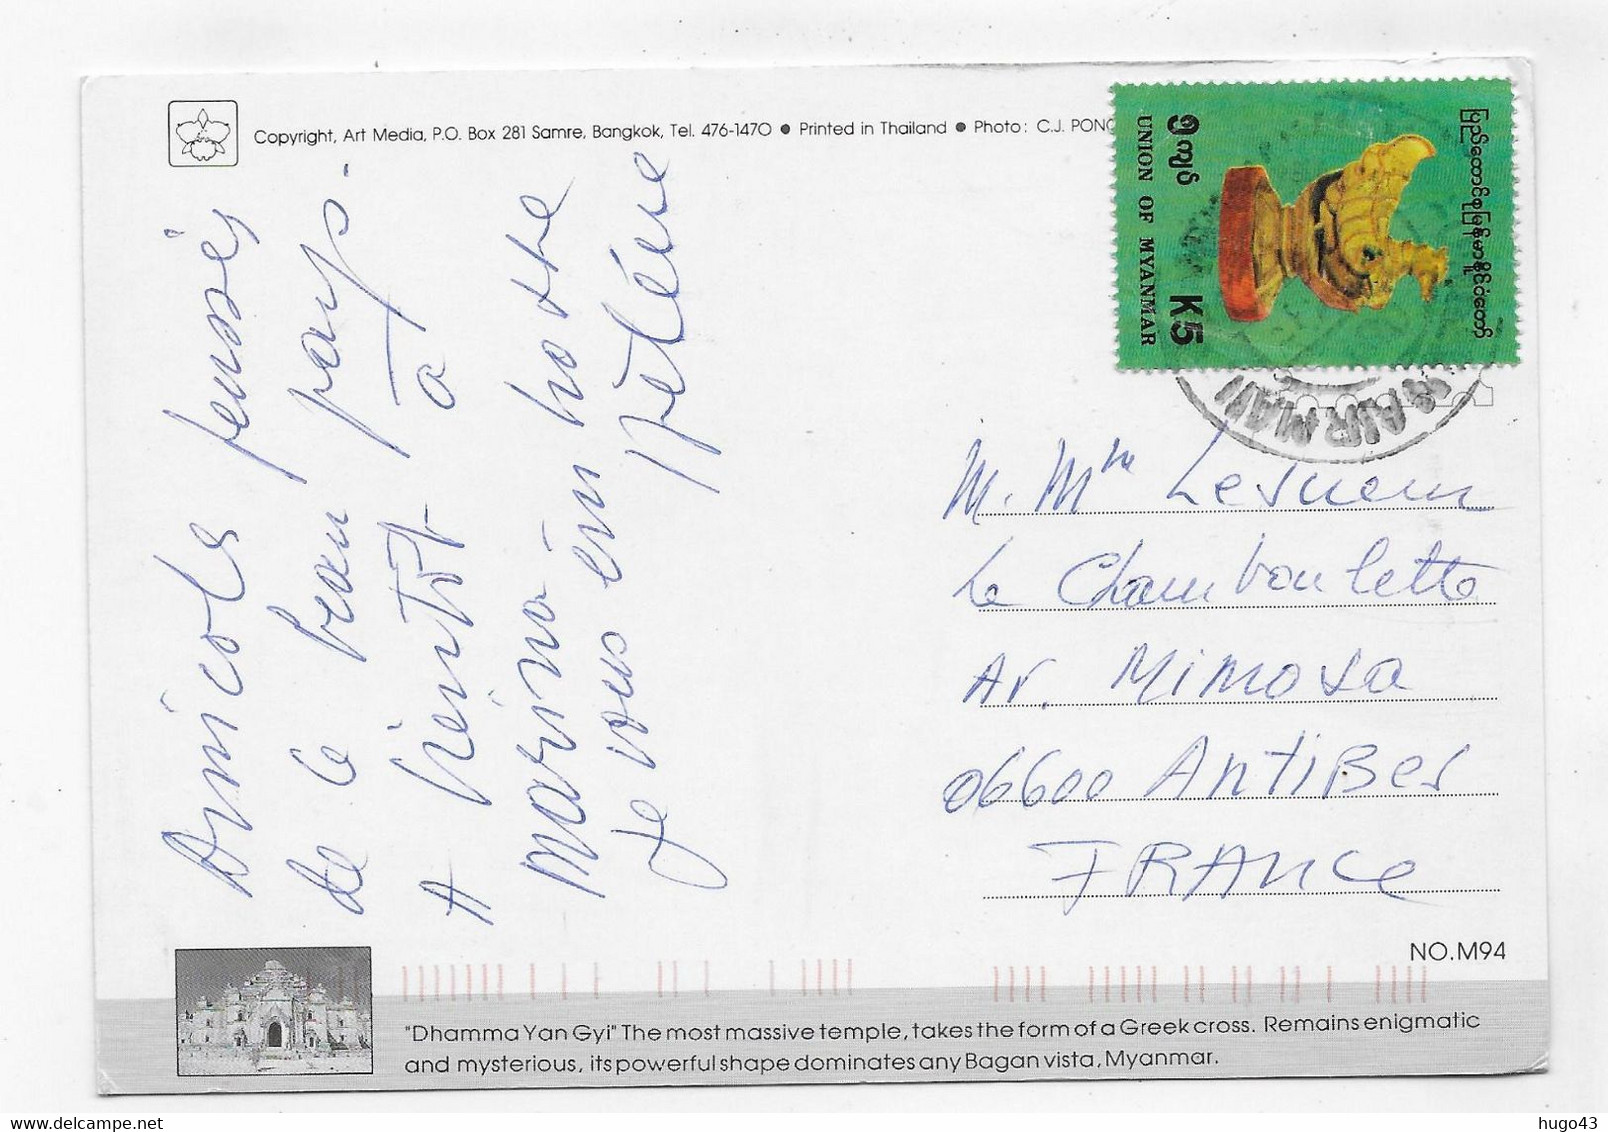 Copyright, Art Media, P.O. Box 281 Samre, Bangkok, Tel. 476-1470 ● Printed in Thailand ● Photo: C.J. PONG
၅ကျပ်
UNION OF MYANMAR
K5
AIR MAIL
Amicales pensées
de ce beau pays.
A bientôt à
marina en hotte
je vous en
Hélène
M. Mme
La Chamboulette
Av. Mimosa
06600 Antibes
FRANce
NO.M94
"Dhamma Yan Gyi" The most massive temple, takes the form of a Greek cross. Remains enigmatic
and mysterious, its powerful shape dominates any Bagan vista, Myanmar.
hugo43